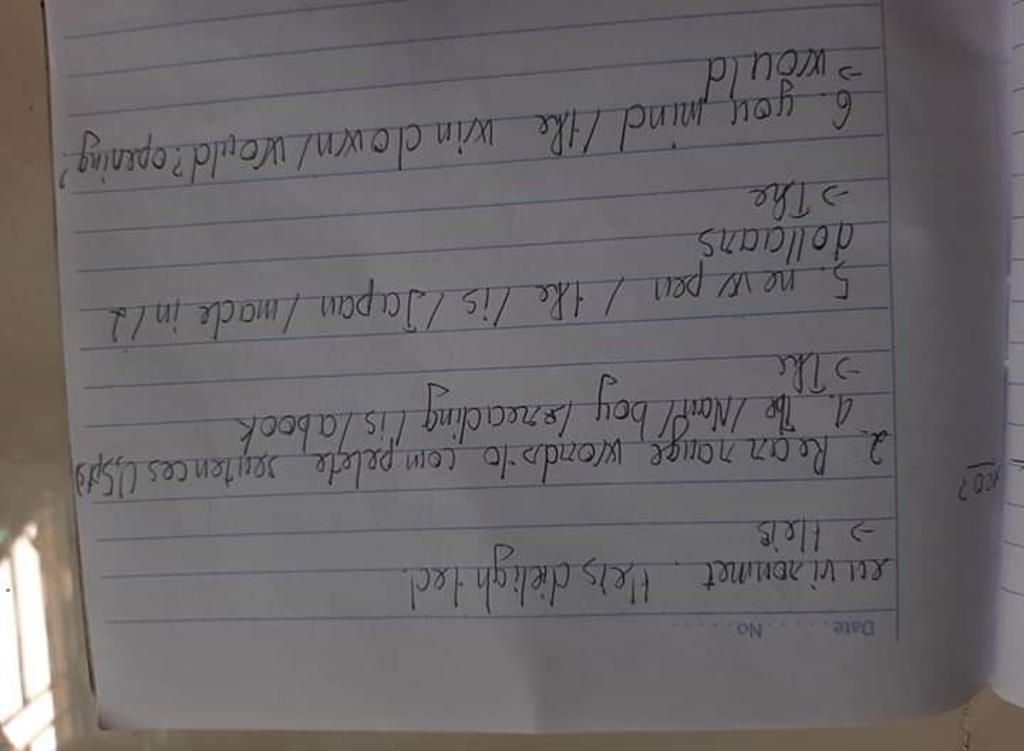 Date ..... No. .....
envi ronmet. He is deligh ted.
→ He is
2. Rearrange words to com pelete sentences (1,5pts)
4. The / boy / reading / is / a book
→ The
5. new pen / the / is / Japan / made in / 2
dollars
→ The
6. you mind / the win down / would? opening?
→ would